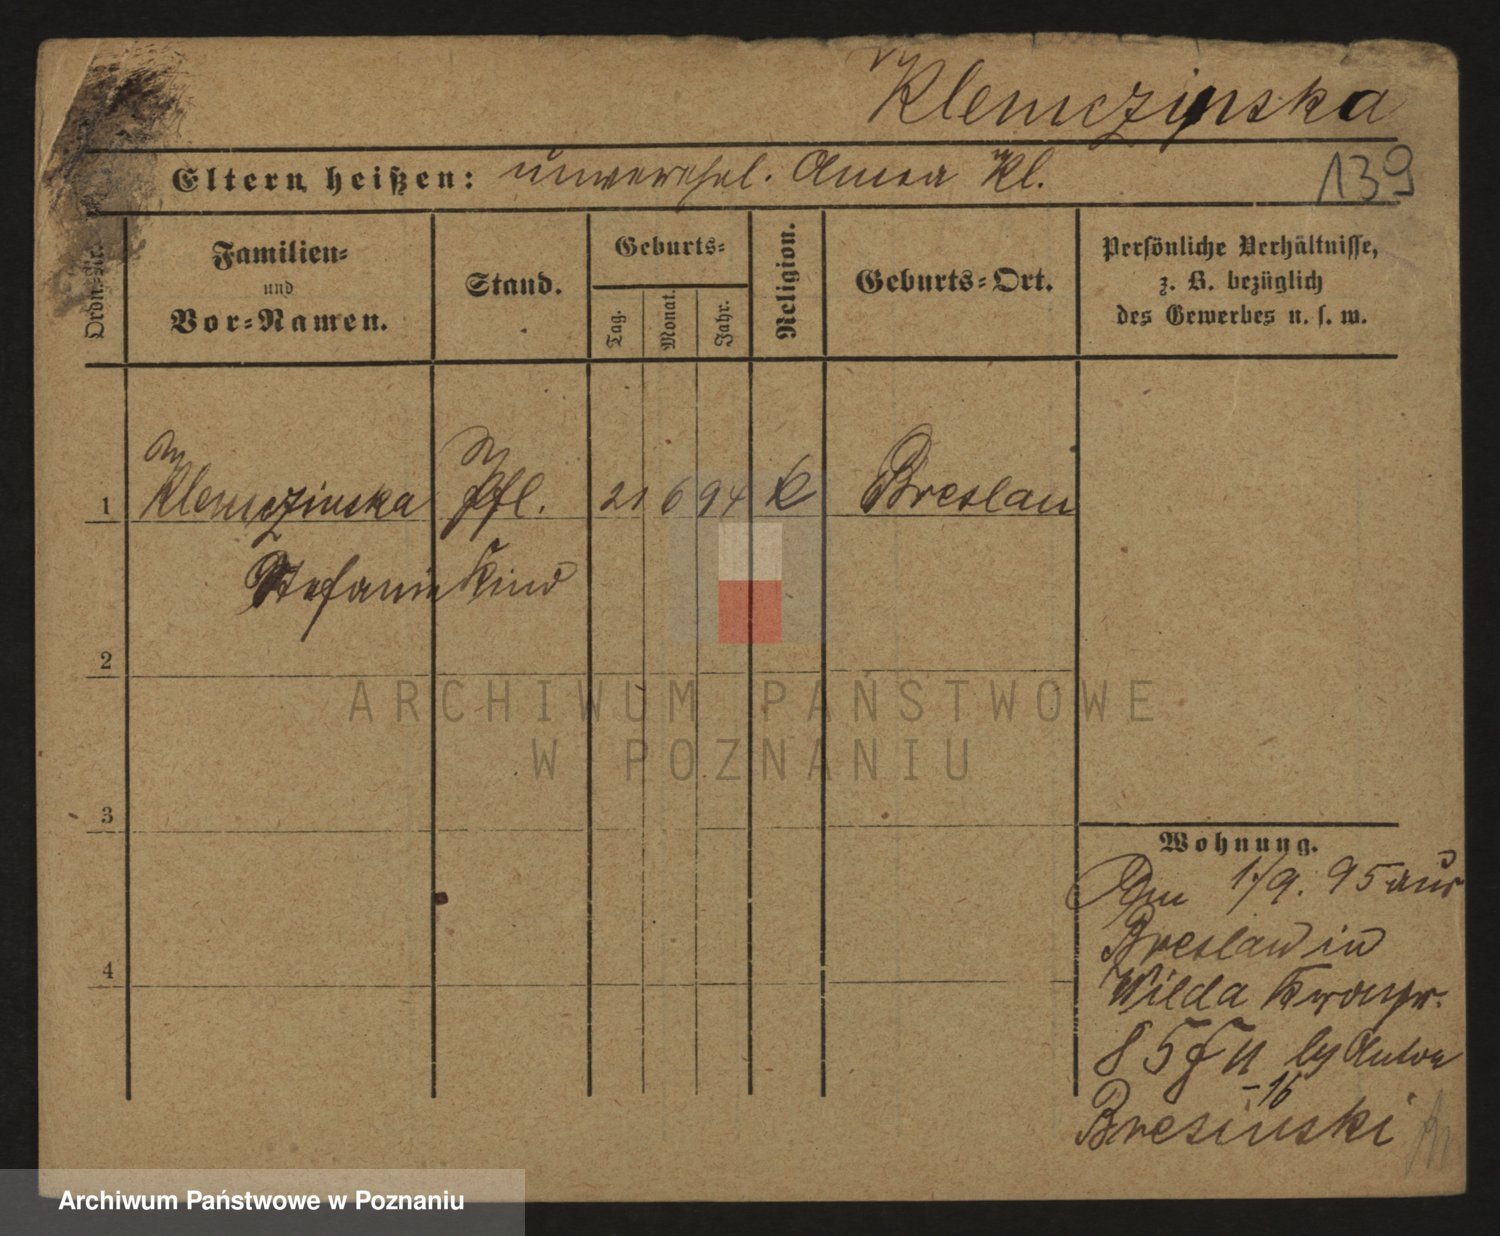 Klemczinska
Eltern heißen: unverehel. Anna Kl.
139
Ordn.-Nr.
Familien-
und
Vor-Namen.
Stand.
Geburts-
Tag.
Monat.
Jahr.
Religion.
Geburts-Ort.
Persönliche Verhältnisse,
z. B. bezüglich
des Gewerbes u. s. w.
1 Klemczinska Pfl. 21 6 94 K Breslau
Stefanie Kind
2
3
4
Wohnung.
Am 1/9. 95 aus
Breslau in
Wilda Kronpr.
85 by Anton
-16
Bresinski
ARCHIWUM PAŃSTWOWE
W POZNANIU
Archiwum Państwowe w Poznaniu